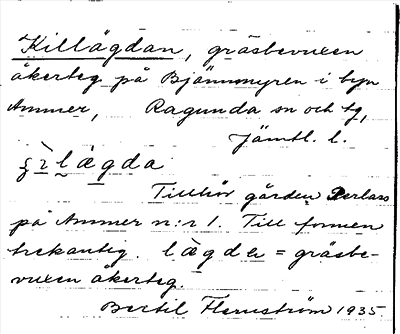 Killägdan, gräsbevuxen
åkerteg på Bjännmyren i byn
Ammer, Ragunda sn och tg,
Jämtl. l.
ʂìlägda
Tillhör gården Perlars
på Ammer n:r 1. Till formen
trekantig. lägde = gräsbe-
vuxen åkerteg.
Bertil Flemström 1935.